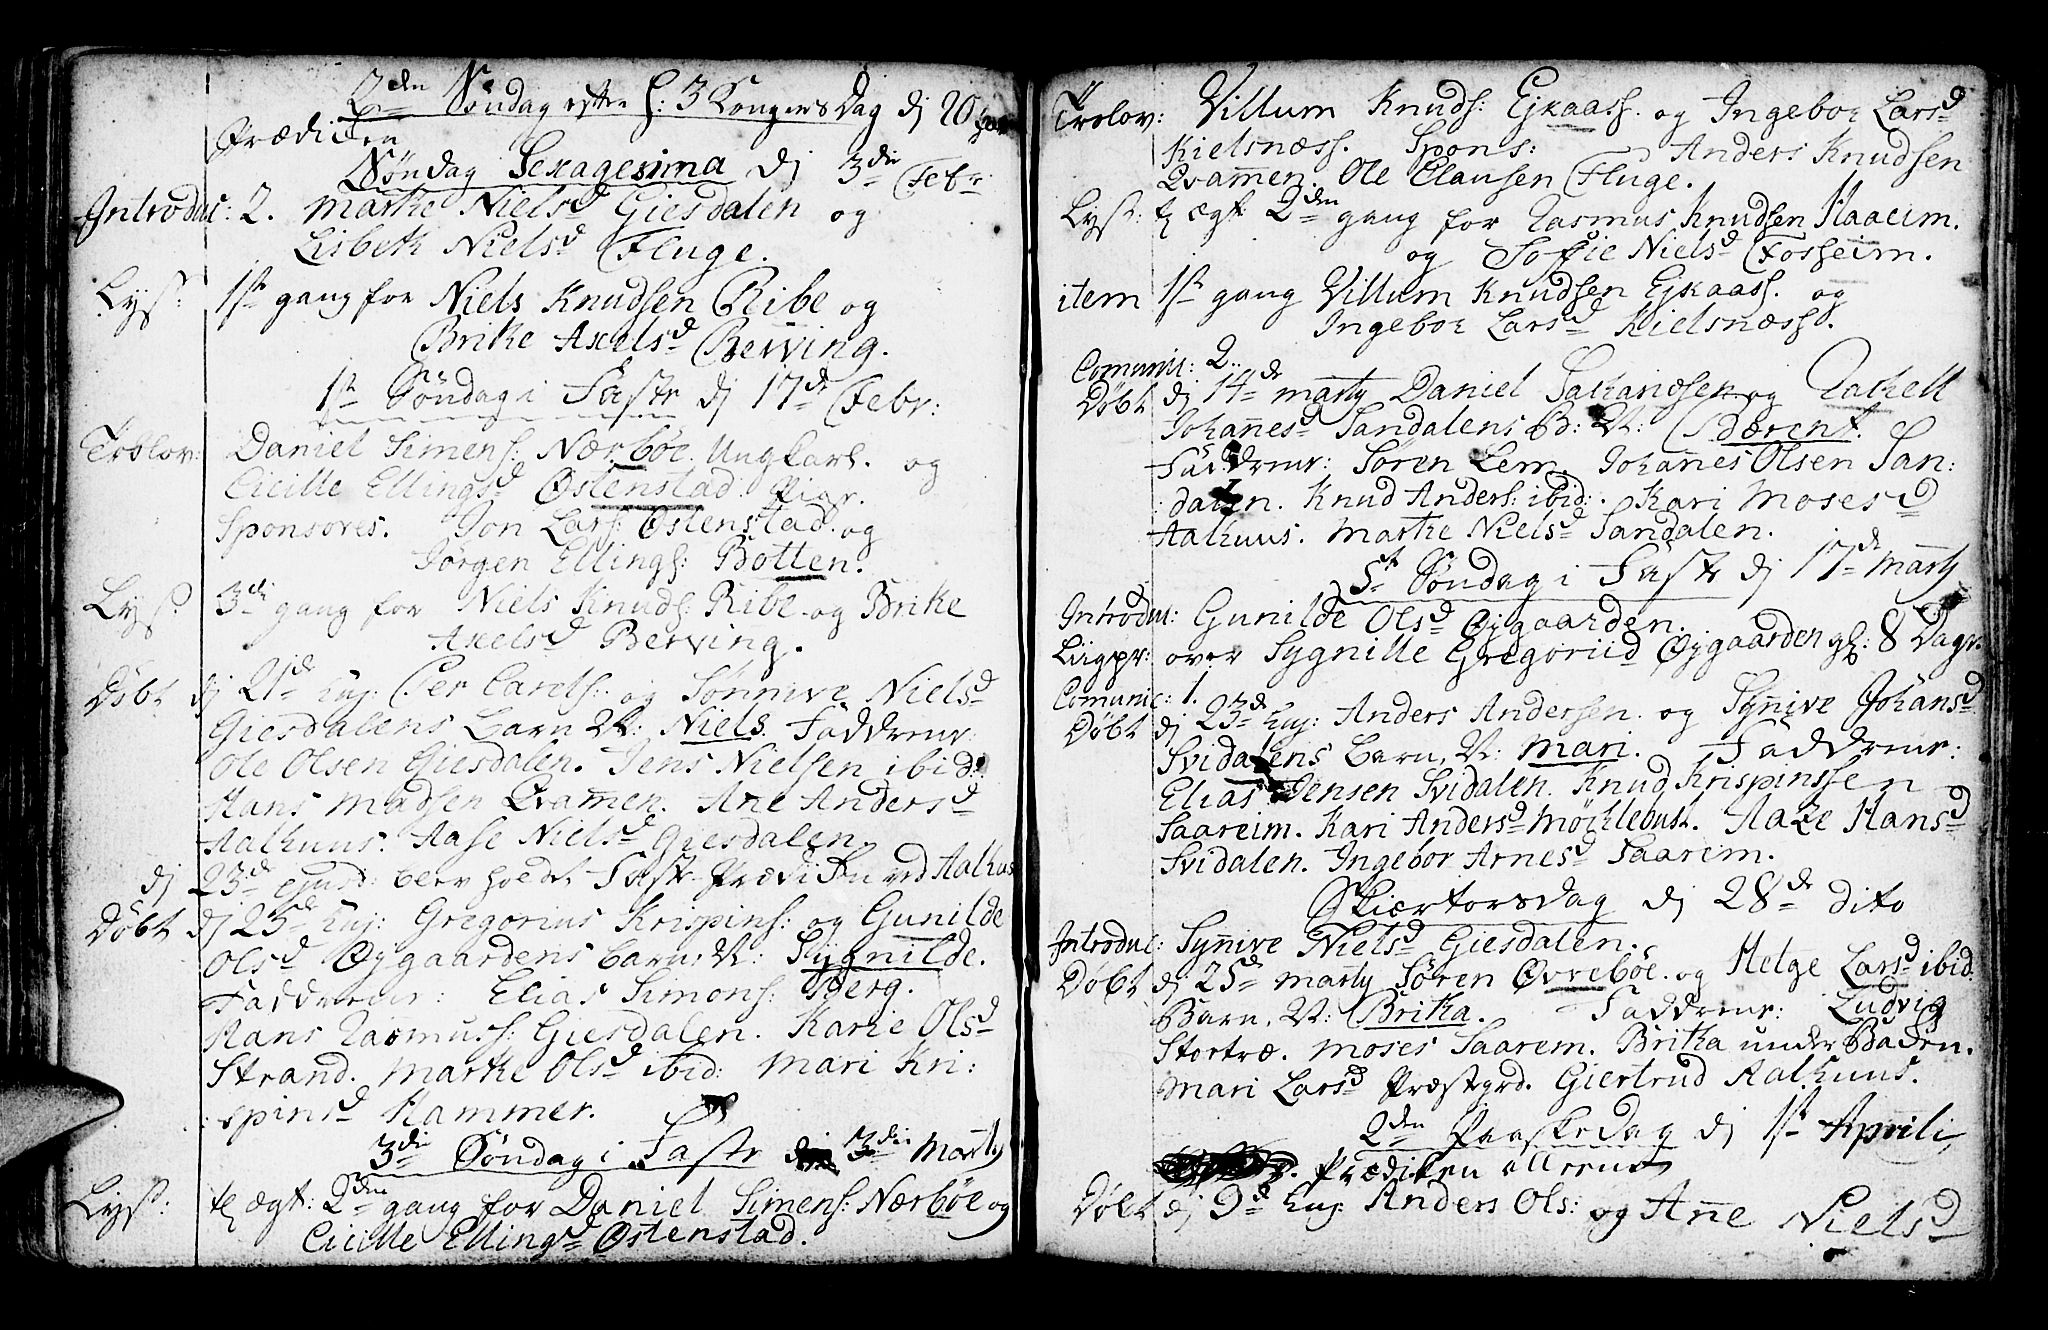 2den Søndag efter H: 3 Kongers Dag dj 20 Jan
Prædiken
Søndag Sexagesima dj 3die Febr:
Introduc: 2. Marte Nielsd Giesdalen og
Lisbeth Nielsd Fluge.
Lyst: 1ste gang for Niels Knudsen Ribe og
Brite Axelsd Berving.
1ste Søndag i Faste dj 17de Febr:
Trolov: Daniel Simens: Nærbøe. Ungkarl. og
Cicille Ellingsd Østenstad Pige.
Sponsores. Jon Lars: Østenstad og
Jørgen Ellings: Botten.
Lyst 3die gang for Niels Knuds: Ribe og Brite
Axelsd Berving.
Døbt dj 21de huj: Per Carels: og Sønnive Nielsd
Giesdalens Barn N: Niels. Faddrene:
Ole Olsen Giesdalen. Jens Nielsen ibid:
Hans Madsen Qvamen. Ane Andersd
Aalhuus. Aase Nielsd Giesdalen.
dj 23de ejusd: blev holdt Faste Prædiken ved Aalhus
Døbt dj 25de huj: Gregorius Krispins: og Gunilde
Olsd Øygaardens Barn: N: Sygnilde.
Fadderne: Elias Simons: Berg.
Hans Rasmuss: Giesdalen. Karie Olsd
Strand. Marte Olsd ibid: Mari Kri:
spinsd Hammer.
3die Søndag i Faste 3die Marty
Lyst: t ægt: 2den gang for Daniel Simens: Nærbøe og
Cicille Ellingsd Østenstad.
Trolov: Villum Knuds: Ejkaass. og Ingebor Larsd
Kielsnæss. Spons: Anders Knudsen
Qvamen Ole Clausen Fluge.
Lyst: t ægt 2den gang for Rasmus Knudsen Haaeim.
og Soffie Nielsd Fosheim.
item 1ste gang Villum Knudsen Ejkaass. og
Ingebor Larsd Kielsnæss.
Comunic: 2.
Døbt dj 14de Marty Daniel Sakariæsen og Rakell
Johanesd Sandalens B: N: Bærent.
Faddrene: Søren Lem. Johannes Olsen San:
dalen. Knud Anders: ibid: Kari Mosesd
Aalhuus. Marte Nielsd Sandalen.
5te Søndag i Faste dj 17de Marty
Introduc: Gunilde Olsd Øygaarden.
Liigpr: over Sygnille Gregoriid Øygaarden gl: 8 Dage.
Comunic: 1.
Døbt dj 23de huj: Anders Andersen og Synive Johansd
Svidalens Barn, N: Mari. Faddrene:
Elias Jensen Svidalen. Knud Krispinssen
Saareim. Kari Andersd Møchlebust. Aaze Hansd
Svidalen. Ingebor Arnesd Saarem.
Skiertorsdag dj 28de dito
Introduc: Synive Nielsd Giesdalen.
Døbt dj 25de Marty Søren Øvrebøe og Helge Larsd ibid:
Barn, N: Brita. Faddrene: Ludvig
Stortræ. Moses Saarem. Brita under Baden.
Mari Larsd Præstgrd. Giertrud Aalhuus.
2den Paaskedag dj 1ste Aprili
Prædiken allene
Døbt dj 9de huj: Anders Ols: og Ane Nielsd